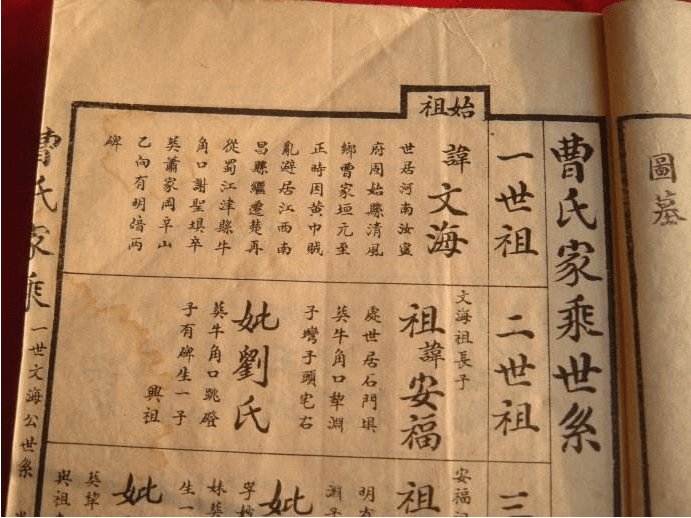 圖墓
曹氏家乘世系
始祖
一世祖
諱文海
世居河南汝寧
府固始縣清風
鄉曹家垣元至
正時因黃巾賊
亂避居江西南
昌縣繼遷楚再
從蜀江津縣牛
角口謝聖垻卒
葬蕭家岡阜山
乙向有明墖丙
碑
二世祖
文海祖長子
祖諱安福
處世居石門垻
葬牛角口犂淵
子灣子頭宅右
妣劉氏
葬牛角口跳磴
子有碑生一子
興祖
三
安福
祖
明有
淵子
妣
妹葬
生一
妣
葬犂
與祖
曹氏家乘
一世文海公世系